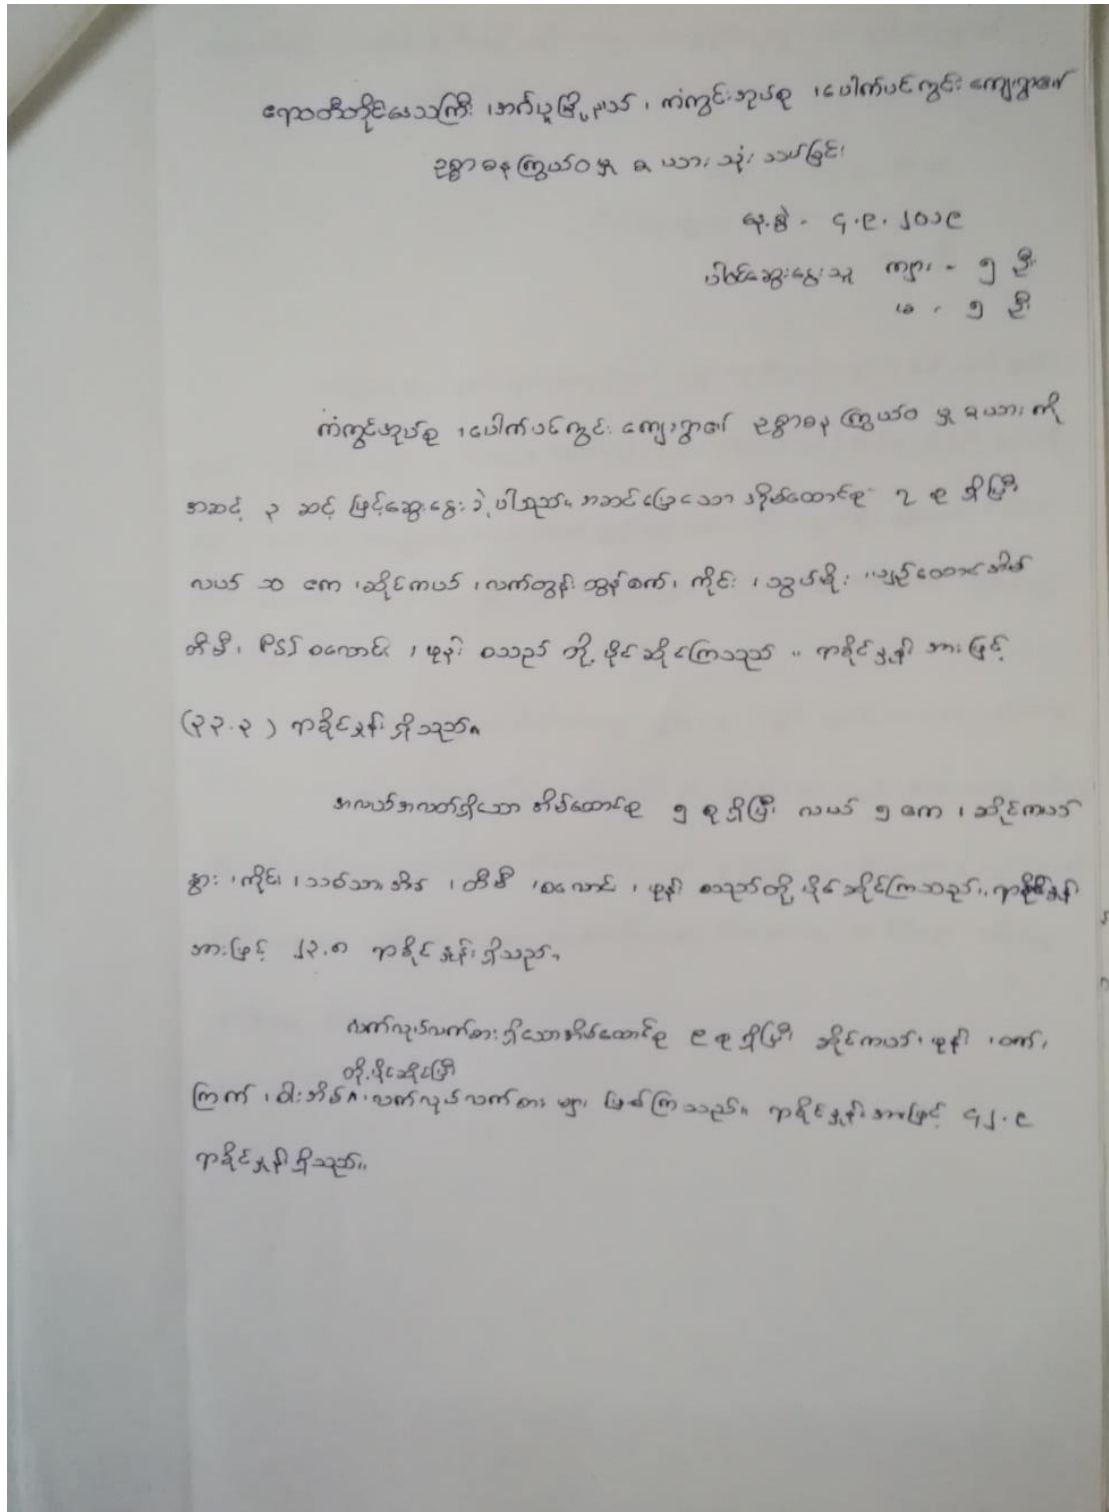 ဧရာဝတီတိုင်းဒေသကြီး ၊ ဘင်္ဂပူမြို့နယ် ၊ ကံကွင်းအုပ်စု ၊ ပေါက်ပင်ကွင်း ကျေးရွာ၏
ဥစ္စာဓနကြွယ်ဝမှု ဇယား သုံးသပ်ခြင်း
နေ့စွဲ - ၄.၉.၂၀၁၉
ပါဝင်ဆွေးနွေးသူ ကျား - ၅ ဦး
မ - ၅ ဦး
ကံကွင်းအုပ်စု ၊ ပေါက်ပင်ကွင်း ကျေးရွာ၏ ဥစ္စာဓန ကြွယ်ဝ မှု ဇယား ကို
အဆင့် ၃ ဆင့် ဖြင့်ဆွေးနွေးခဲ့ပါသည်။ အဆင်ပြေသော အိမ်ထောင်စု ၇ စု ရှိပြီး
လယ် ၁၀ ဧက ၊ ဆိုင်ကယ် ၊ လက်တွန်း ထွန်စက် ၊ ကိုင်း ၊ သွပ်မိုး ၊ ပျဉ်ထောင်အိမ်
တီဗီ ၊ PSI စလောင်း ၊ ဖုန်း စသည် တို့ ပိုင်ဆိုင်ကြသည် ။ ရာခိုင်နှုန်း အားဖြင့်
(၃၃.၃) ရာခိုင်နှုန်း ရှိသည်။
အလယ်အလတ်ရှိသော အိမ်ထောင်စု ၅ စုရှိပြီး လယ် ၅ ဧက ၊ ဆိုင်ကယ်
နွား ၊ ကိုင်း ၊ သစ်သားအိမ် ၊ တီဗီ ၊ စလောင်း ၊ ဖုန်း စသည်တို့ ပိုင်ဆိုင်ကြသည်။ ရာခိုင်နှုန်း
အားဖြင့် ၂၃.၈ ရာခိုင်နှုန်း ရှိသည်။
လက်လုပ်လက်စား ရှိသောအိမ်ထောင်စု ၉ စု ရှိပြီး ဆိုင်ကယ် ၊ ဖုန်း ၊ ဝက် ၊
တို့ပိုင်ဆိုင်ပြီး
ကြက် ၊ ဝါးအိမ် ၊ လက်လုပ်လက်စား များ ဖြစ်ကြသည်။ ရာခိုင်နှုန်းအားဖြင့် ၄၂.၉
ရာခိုင်နှုန်းရှိသည်။